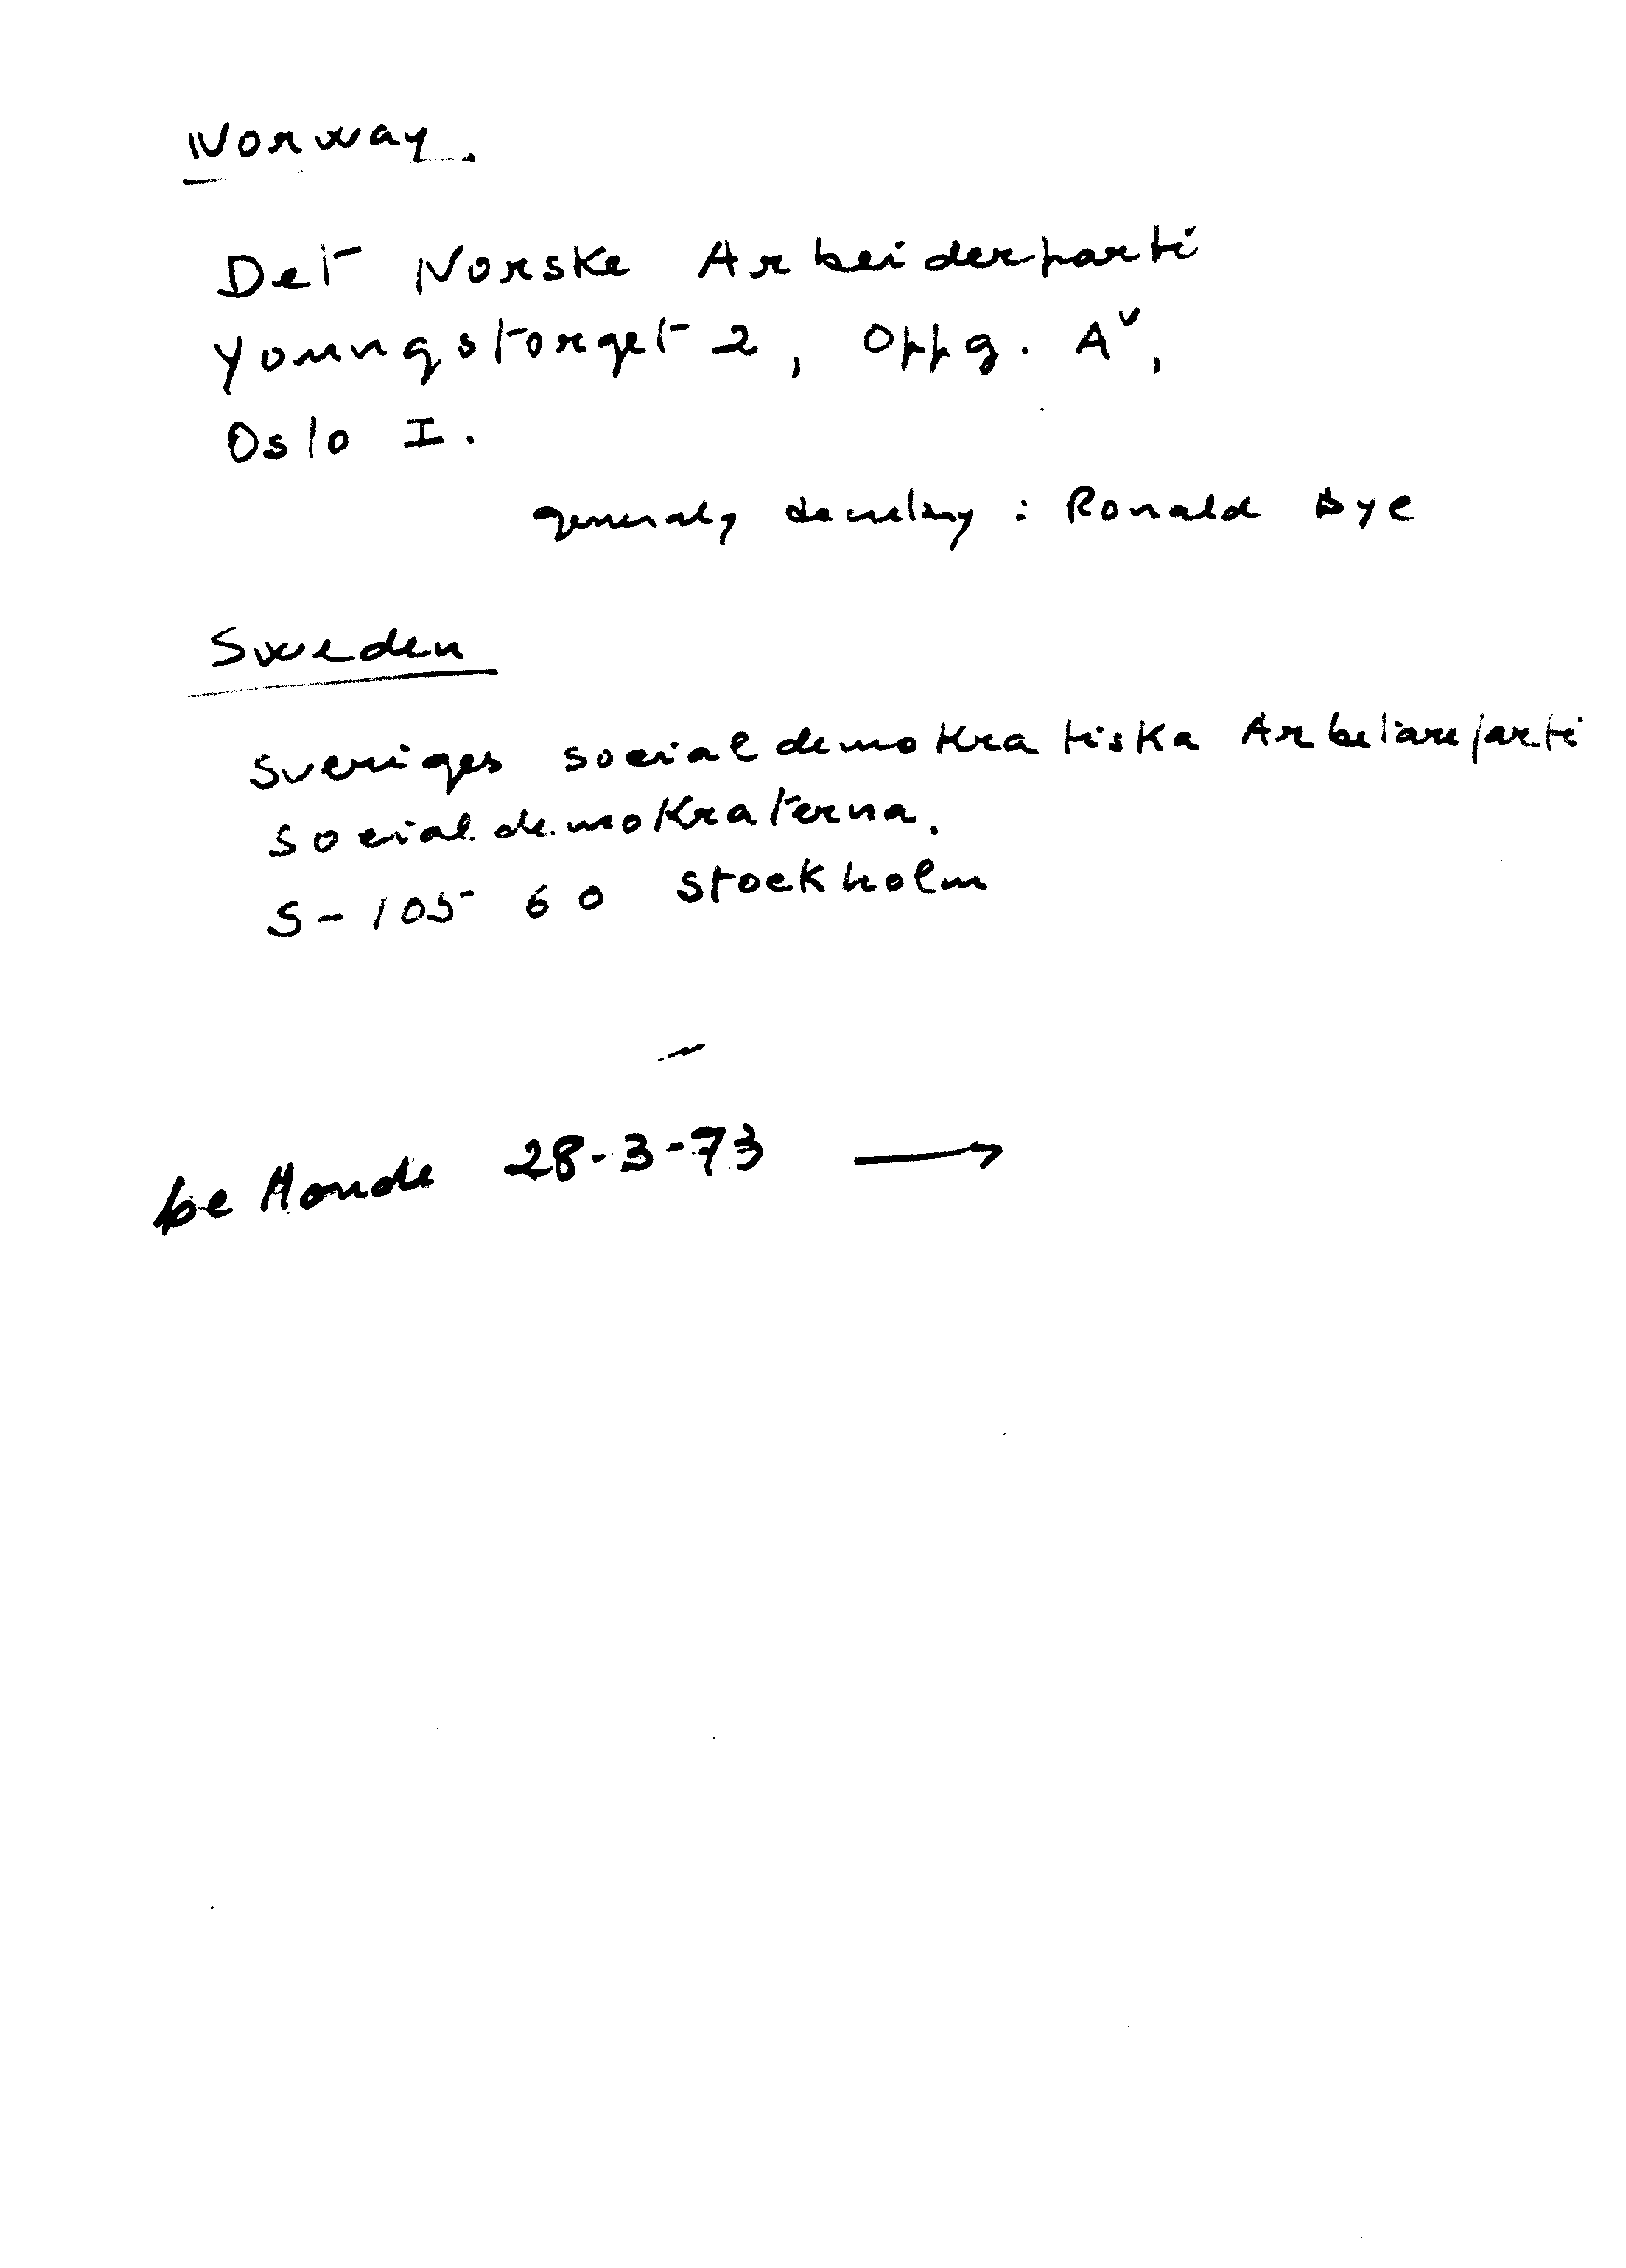 Norway.
Det Norske Arbeiderparti
Youngstorget 2, Oppg. A^v,
Oslo I.
generaly secretary : Ronald Bye
Sweden
Sveriges socialdemokratiska Arbetareparti
socialdemokraterna.
S-105 60 Stockholm
Le Monde 28-3-73 →